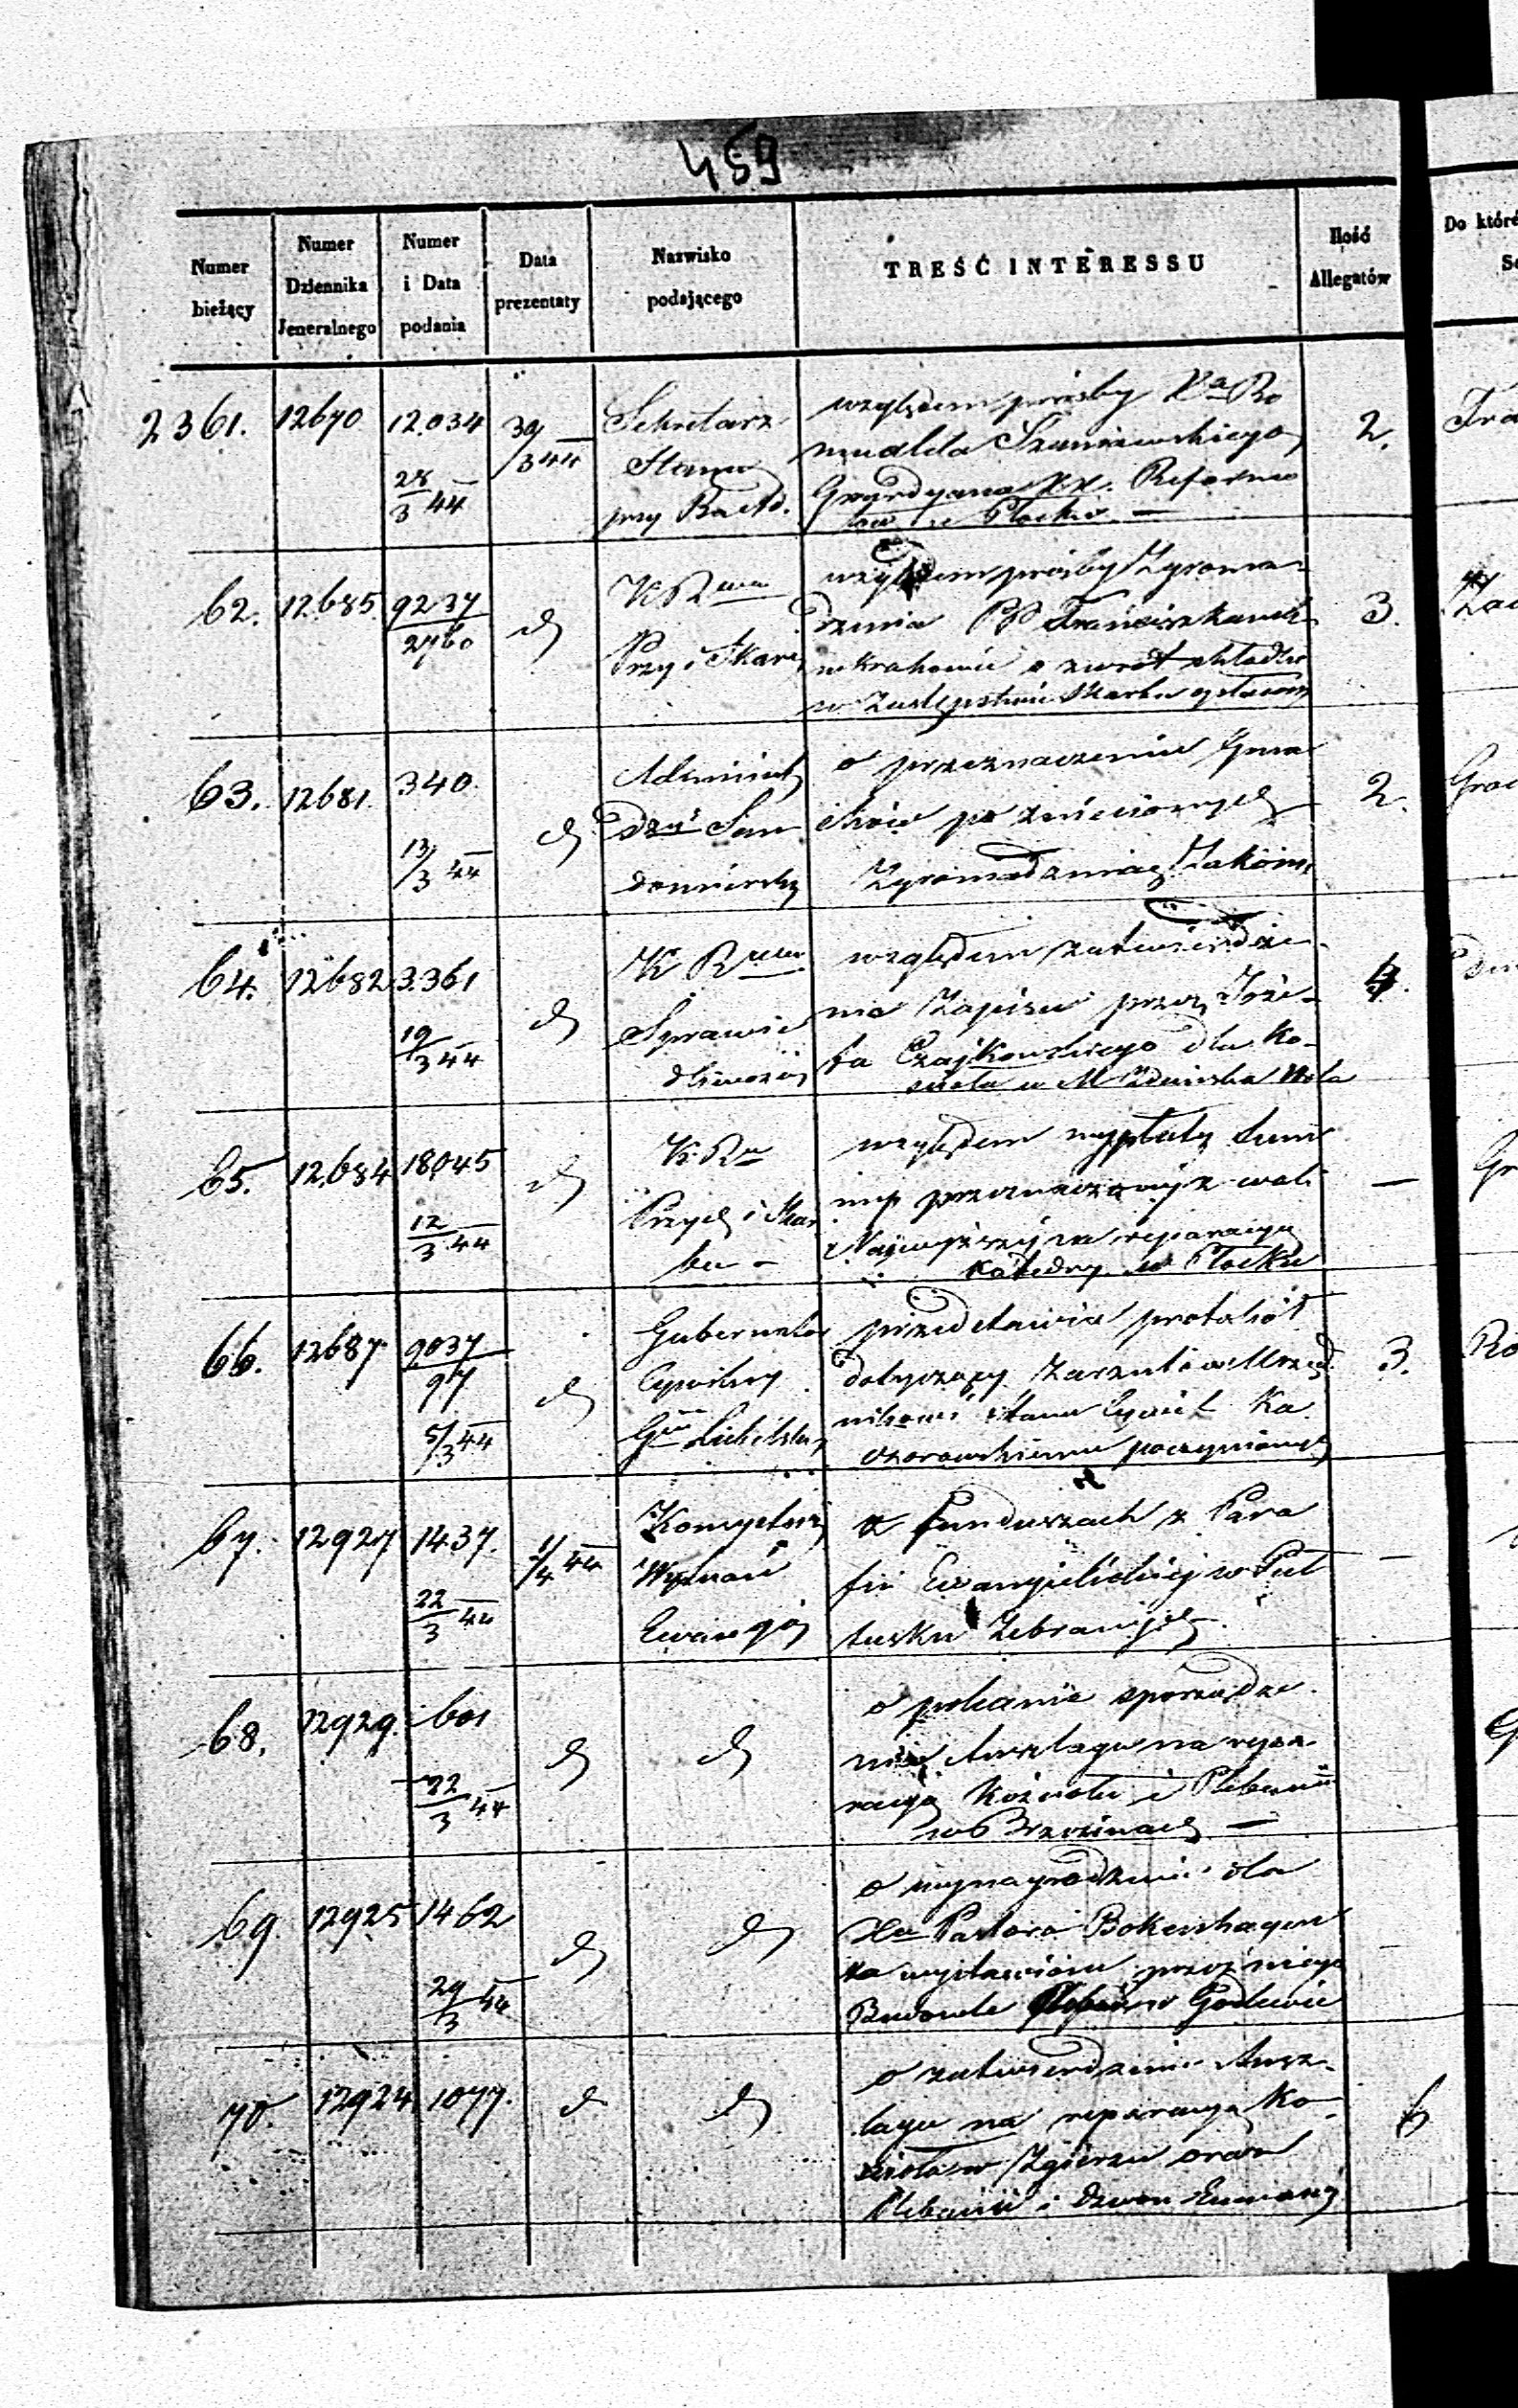 459
Numer bieżący
Numer Dziennika Jeneralnego
Numer i Data podania
Data prezentaty
Nazwisko podającego
TREŚĆ INTERESSU
Ilość Allegatów
Do któré
2361. 12670 12.034 28/3 44 30/3 44
Sekretarz
Stanu
przy Radzie
względem prośby Xa Ro
mualda Szaniawskiego
Gwardyana XX. Reforma
tów w Płocku —
2.
62. 12685. 9237/2760
Przy i Skar
względem prośby Zgroma-
dzenia PP Franciszkanek
w Krakowie o zwrot składki
w Zastępstwie Skarbu opłacon
3.
63. 12681. 340 13/3 44
Administ
Dyi San
domierskiej
o przeznaczenie Gma
chów po zniesionych
Zgromadzeniach Zakon.
2.
64. 12682 3.361 19/3 44
Sprawie
dliwości
względem zatwierdze-
nia Zapisu przez Józe-
fa Czajkowskiego dla Ko-
ścioła w M Zduńska Wola
4.
65. 12.684 18045 12/3 44
Przych i Skar
bu -
względem wypłaty sum
my przeznaczonej z woli
Najwyższej na reparacyą
Katedry w Płocku
—
66. 12687 9037/97 5/3 44
Gubernator
Cywilny
Gnii Lubelskiej
przedstawia protokół
dotyczący zarzutów Urzęd
nikowi Stanu Cywil Ka
czorowskiemu poczynionych
3.
67. 12927 1437. 22/3 44 1/4 44
Konsystorz
Wyznań
Ewangie
o funduszach z Para
fii Ewangielickiej w Puł
tusku Zebranych.
—
68. 12929. 601 22/3 44
o polecenie sporządze-
nia Anszlagu na repa-
racyą Kościoła i Plebanii
w Brzezinach —
69. 12925 1462 29/3 44
o wynagrodzenie dla
Xa Pastora Bokershagen
za wystawione przez niego
Budowle w Godlewie
70. 12924 1077.
o zatwierdzenie Ansz-
lagu na reparacyą Ko-
ścioła w Zgierzu oraz
Plebanii i
6